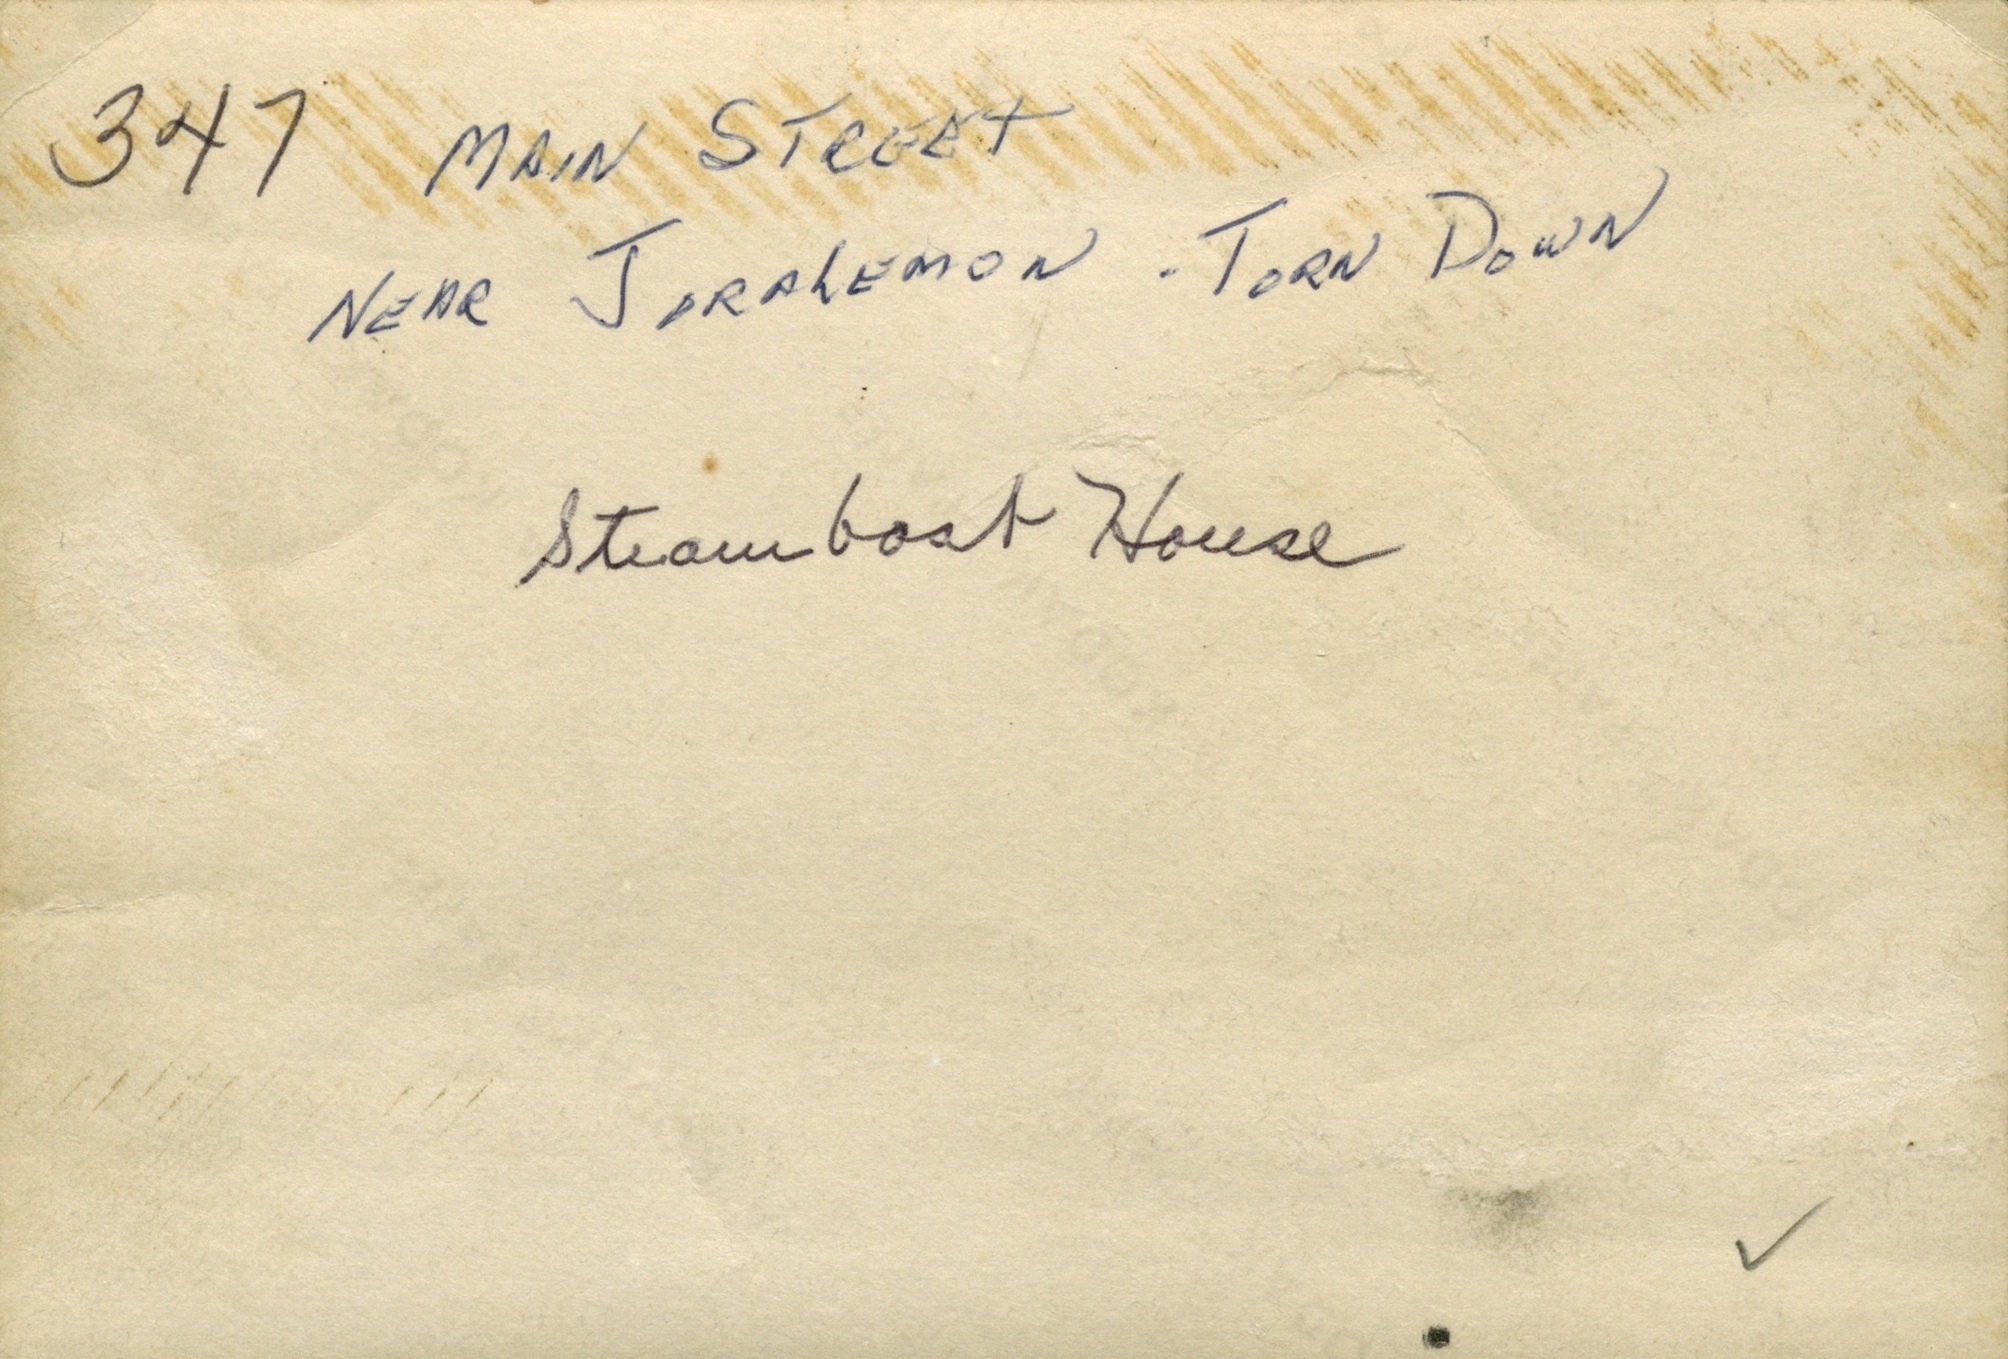 347 MAIN STREET
NEAR JORALEMON - TORN DOWN
Steamboat House